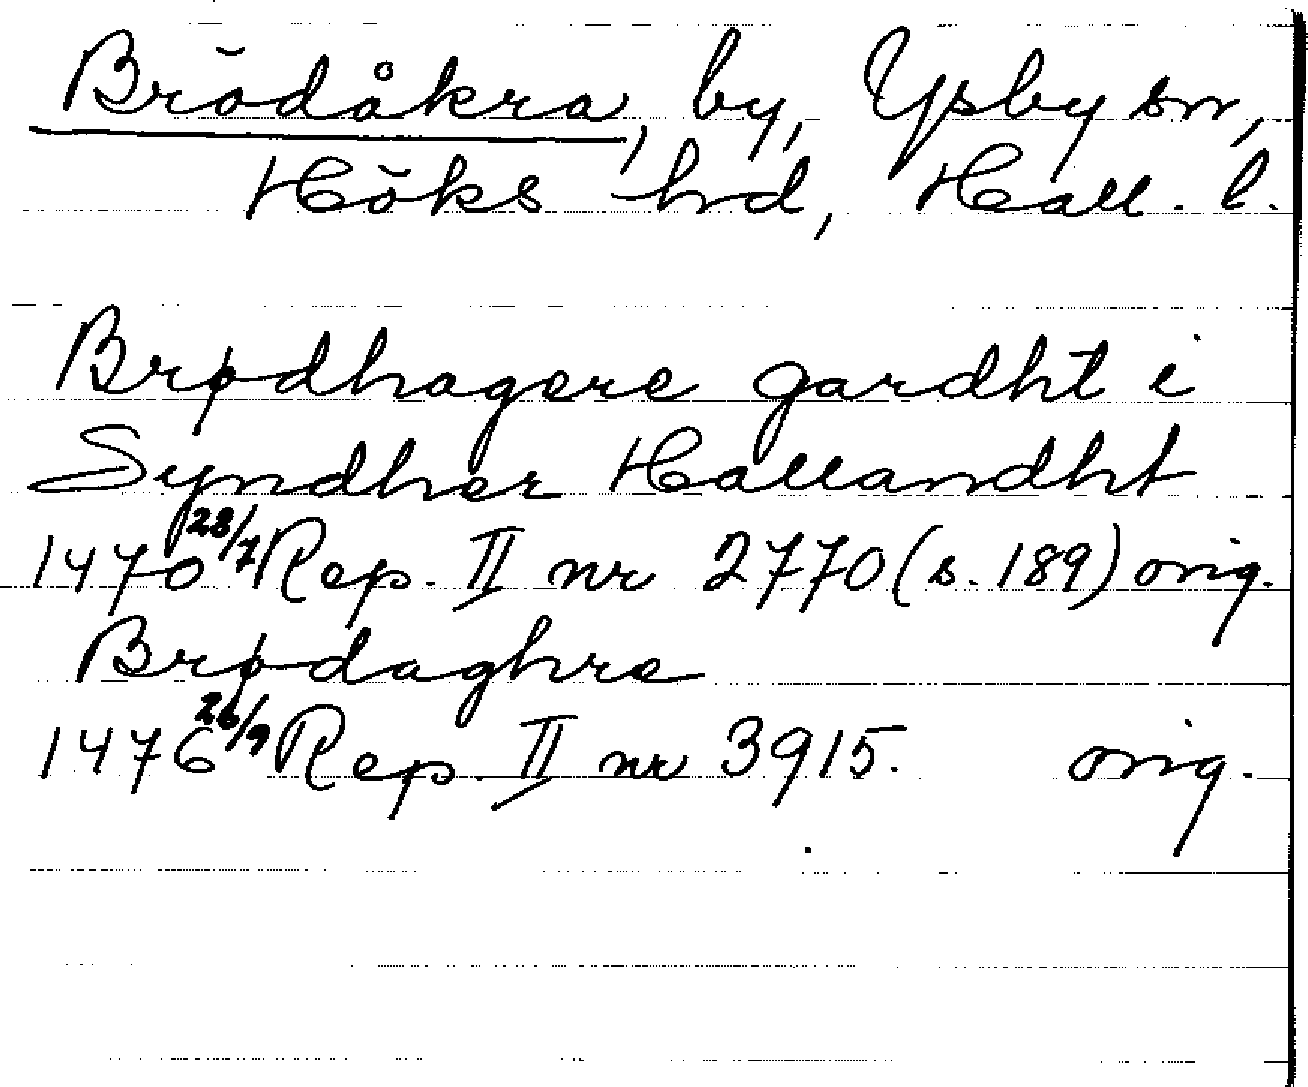 Brödåkra, by, Ypsby sn,
Höks hd, Hall. l.
Brødhagere gardht i
Syndher Hallandht
1470 28/7 Rep. II nr 2770 (s. 189) orig.
Brødaghre
1476 26/9 Rep. II nr 3915. orig.